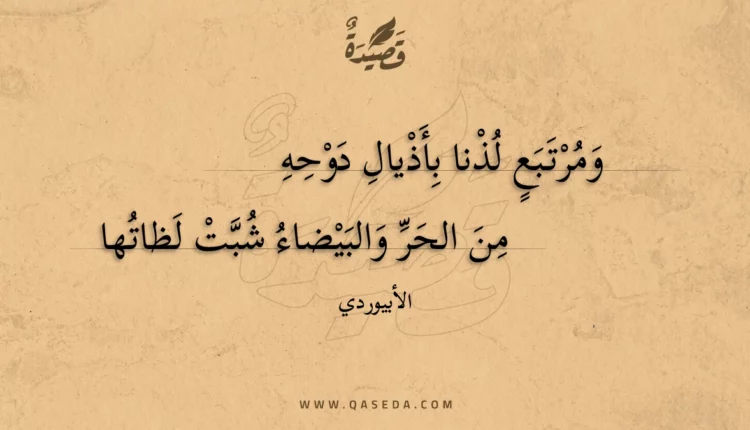 قَصِيْدَةٌ
وَمُرْتَبَعٍ لُذْنا بِأَذْيالِ دَوْحِهِ
مِنَ الحَرِّ وَالبَيْضاءُ شُبَّتْ لَظاتُها
الأبيوردي
WWW.QASEDA.COM